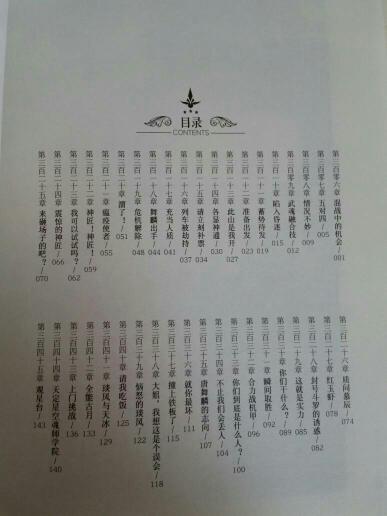 目录
CONTENTS
第三百零六章 混战中的机会/001
第三百零七章 五对四/005
第三百零八章 情况不妙/009
第三百零九章 武魂融合技/012
第三百一十章 陷入昏迷/015
第三百一十一章 蓄势待发/019
第三百一十二章 准备出发/023
第三百一十三章 此山是我开/027
第三百一十四章 各显神通/030
第三百一十五章 请立刻补票/034
第三百一十六章 列车被劫持/037
第三百一十七章 充当人质/041
第三百一十八章 舞麟出手/044
第三百一十九章 危机解除/048
第三百二十章 溜了!/051
第三百二十一章 瘟疫使者/055
第三百二十二章 神匠!神匠!/059
第三百二十三章 我可以试试吗?/062
第三百二十四章 震惊的神匠/066
第三百二十五章 来砸场子的吧?/070
第三百二十六章 质问慕辰/074
第三百二十七章 红玉虾/078
第三百二十八章 封号斗罗的诱惑/082
第三百二十九章 这就是实力/085
第三百三十章 你们干什么?/089
第三百三十一章 瞬间取胜/092
第三百三十二章 合力战机甲/096
第三百三十三章 你们到底是什么人?/100
第三百三十四章 不止我们会丢人/104
第三百三十五章 唐舞麟的志向/107
第三百三十六章 就你最坏/111
第三百三十七章 撞上铁板了/115
第三百三十八章 大姐,我想这是个误会/118
第三百三十九章 恼怒的琰风/122
第三百四十章 请我吃饭/125
第三百四十一章 琰风与天冰/129
第三百四十二章 全能古月/133
第三百四十三章 上门挑战/136
第三百四十四章 天定星空魂师学院/140
第三百四十五章 观星台/143